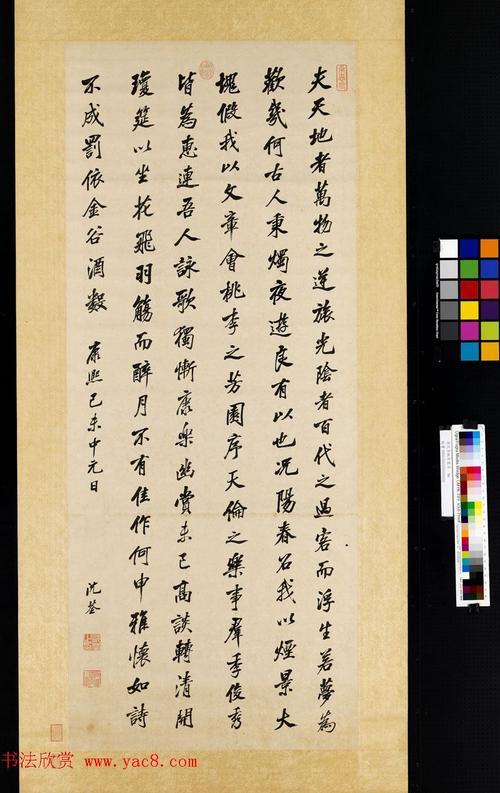 夫天地者萬物之逆旅光陰者百代之過客而浮生若夢為
歡幾何古人秉燭夜遊良有以也況陽春召我以煙景大
塊假我以文章會桃李之芳園序天倫之樂事羣季俊秀
皆為惠連吾人詠歌獨慚康樂幽賞未已高談轉清開
瓊筵以坐花飛羽觴而醉月不有佳作何申雅懷如詩
不成罰依金谷酒數 康熙己未中元日 沈荃
书法欣赏 www.yac8.com